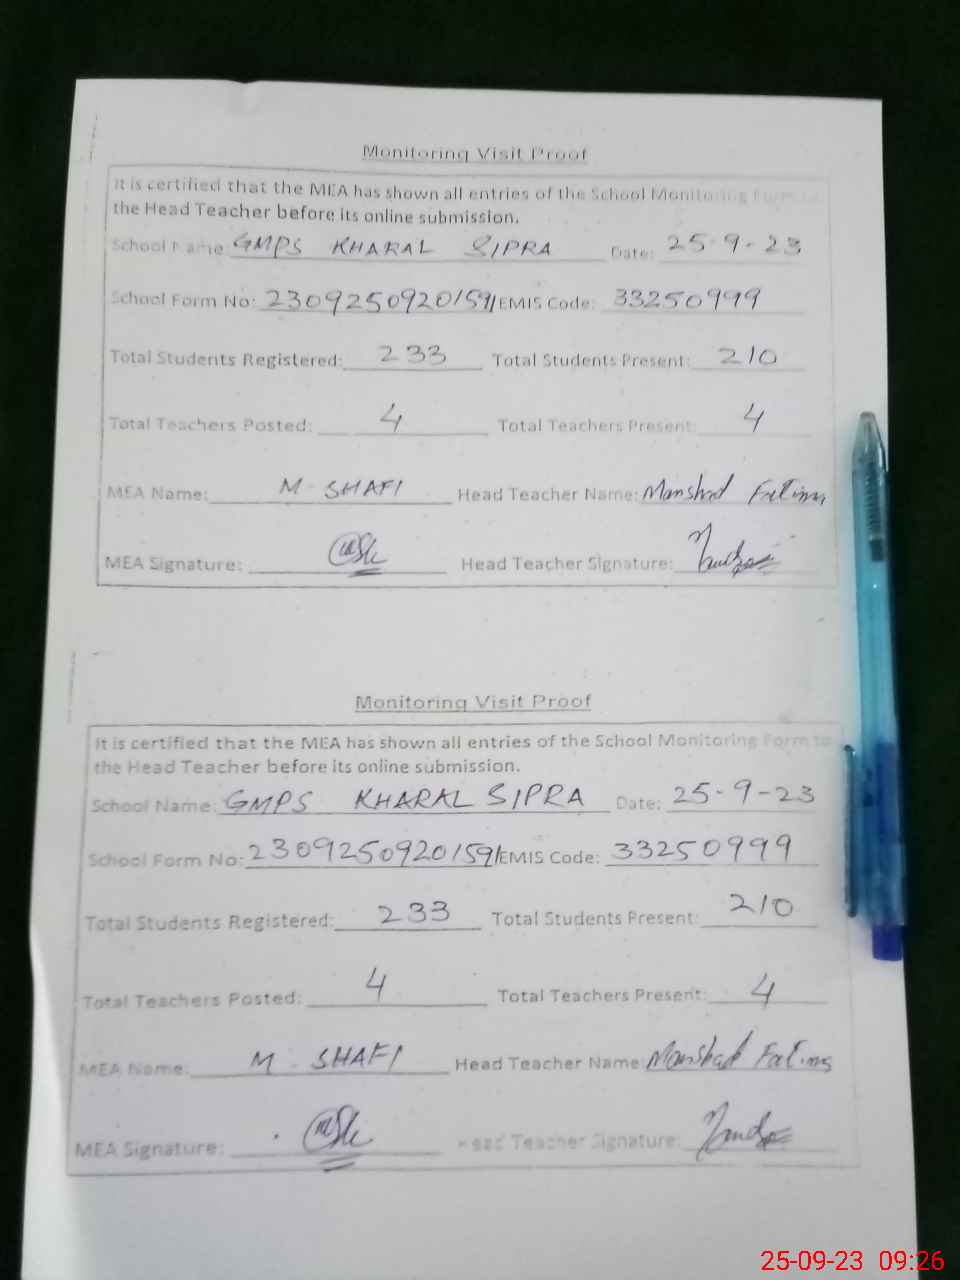 Monitoring Visit Proof
It is certified that the MEA has shown all entries of the School Monitoring Form to
the Head Teacher before its online submission.
School Name: GMPS KHARAL SIPRA Date: 25-9-23
School Form No: 2309250920159 EMIS Code: 33250999
Total Students Registered: 233 Total Students Present: 210
Total Teachers Posted: 4 Total Teachers Present: 4
MEA Name: M. SHAFI Head Teacher Name: Manshad Fatima
MEA Signature: Head Teacher Signature:
Monitoring Visit Proof
It is certified that the MEA has shown all entries of the School Monitoring Form to
the Head Teacher before its online submission.
School Name: GMPS KHARAL SIPRA Date: 25-9-23
School Form No: 2309250920159 EMIS Code: 33250999
Total Students Registered: 233 Total Students Present: 210
Total Teachers Posted: 4 Total Teachers Present: 4
MEA Name: M. SHAFI Head Teacher Name: Manshad Fatima
MEA Signature: Head Teacher Signature:
25-09-23 09:26